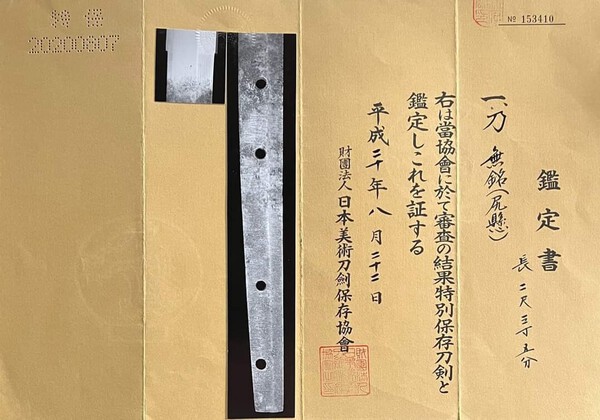 № 153410
鑑定書
一、刀 無銘(尻懸)
長 二尺三寸五分
右は當協會に於て審査の結果特別保存刀剣と
鑑定しこれを証する
平成二十年八月二十二日
財團法人 日本美術刀劍保存協會
特保
20200807